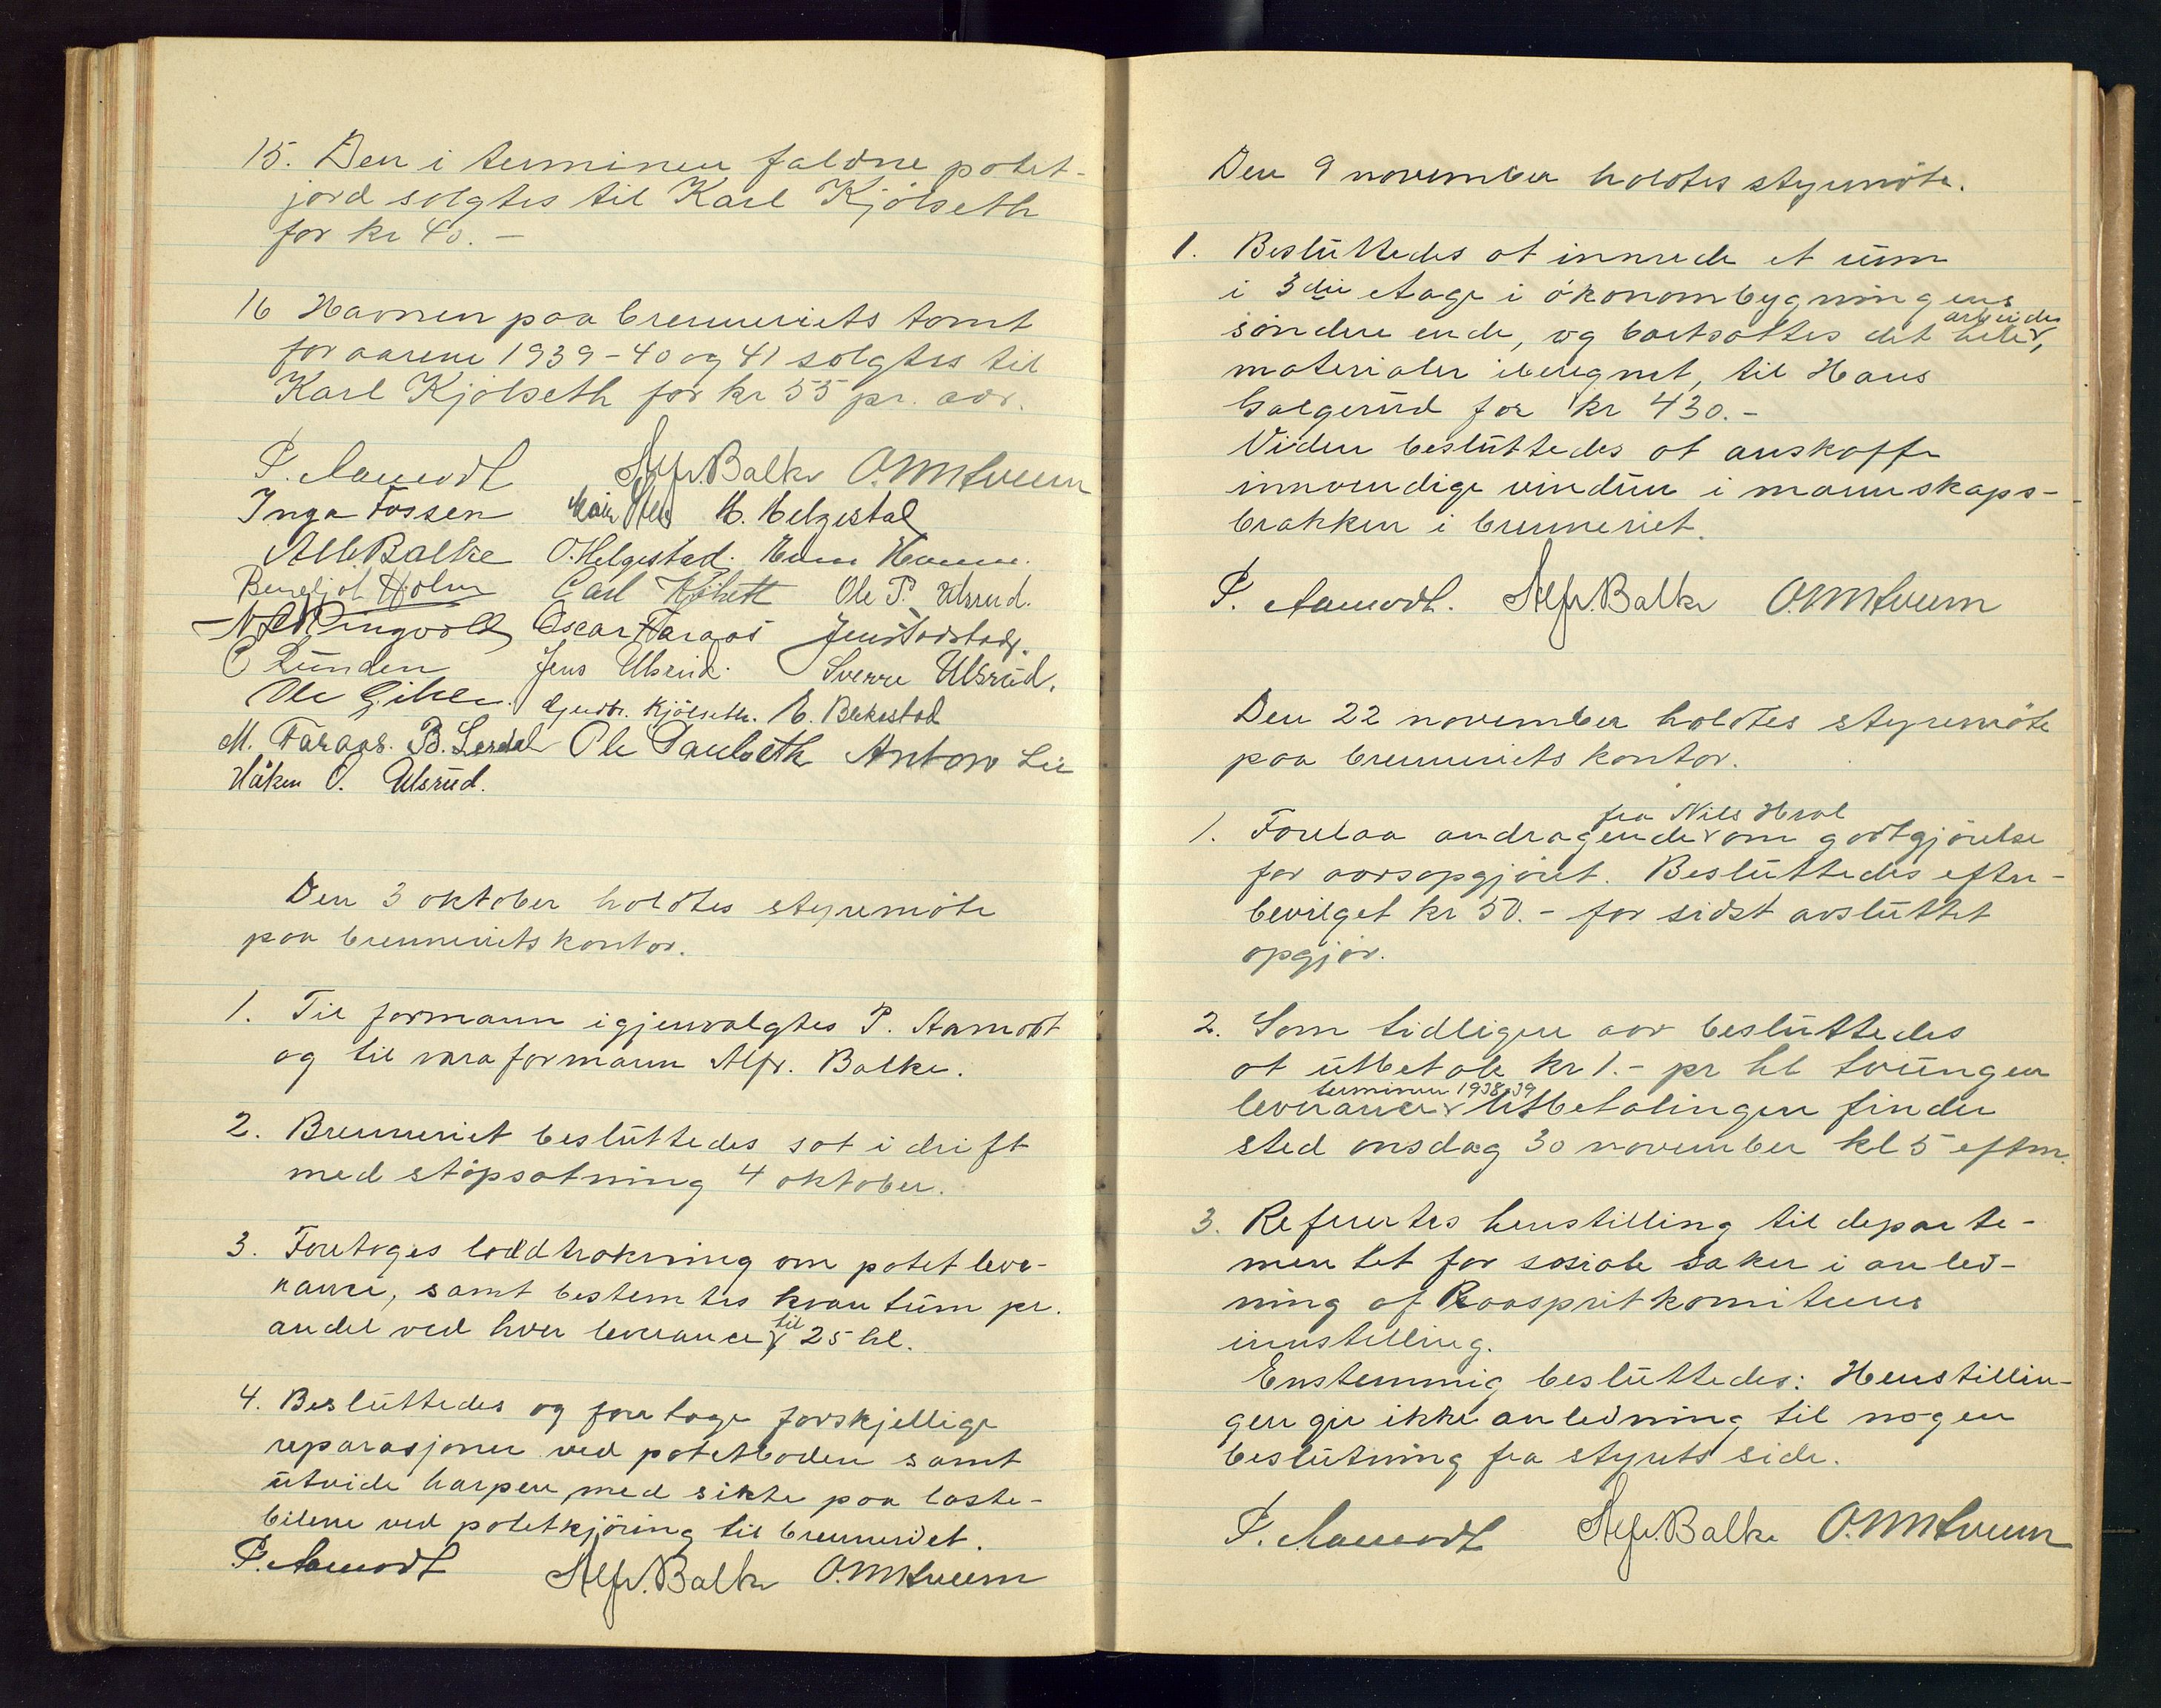 15. Den i terminen faldne potet-
jord solgtes til Karl Kjölseth
for kr 40.-
16 Havnen paa brenneriets tomt
for aarene 1939-40 og 41 solgtes til
Karl Kjölseth for kr 55 pr. aar.
P. Aamodt Alfr. Balke O. M. Kveum
Inga Fossen H. Helgestad
Alb. Balke O. Helgestad.
Bergljot Holm Carl Kjölseth Ole P. Ulsrud.
Ringvold Oscar Faraas Jens
Lunden Jens Ulsrud. Sverre Ulsrud.
Ole Gihle. Gudbr. Kjölseth. E. Blekestad
M. Faraas. B. Lerdal Ole Paulseth Anton Lie
Håken O. Ulsrud.
Den 3 oktober holdtes styremöte
paa brenneriets kontor.
1. Til formann igjenvalgtes P. Aamodt
og til varaformann Alfr. Balke.
2. Brenneriet besluttedes sat i drift
med stöpsætning 4 oktober.
3. Foretoges loddtrækning om potetleve-
rance, samt bestemtes kvantum pr.
andel ved hver leverance til 25 hl.
4. Besluttedes og foretage forskjellige
reparasjoner ved potetboden samt
utvide harpen med sikte paa laste-
bilene ved potetkjöring til brenneriet.
P. Aamodt Alfr. Balke O. M. Kveum
Den 9 november holdtes styremöte.
1. Besluttedes at innrede et rum
i 3die etage i ökonombygningens
söndre ende, og bortsattes det hele arbeide,
materialer iberegnet, til Hans
Galgerud for kr 430.-
Videre besluttedes at anskaffe
innvendige vinduer i mannskaps-
brakken i brenneriet.
P. Aamodt. Alfr. Balke O. M. Kveum
Den 22 november holdtes styremöte
paa brenneriets kontor.
1. Forelaa andragende fra Nils Hval om godtgjörelse
for aarsopgjöret. Besluttedes efter-
bevilget kr 50.- for sidst avsluttet
opgjör.
2. Som tidligere aar besluttedes
at utbetale kr 1.- pr hl tvungen
leverance terminen 1938-39 Utbetalingen finder
sted onsdag 30 november kl 5 eftm.
3. Refertes henstilling til departe-
mentet for sosiale saker i anled-
ning af Raaspritkomiteens
innstilling.
Enstemmig besluttedes: Henstillin-
gen gir ikke anledning til nogen
beslutning fra styrets side.
P. Aamodt Alfr. Balke O. M. Kveum